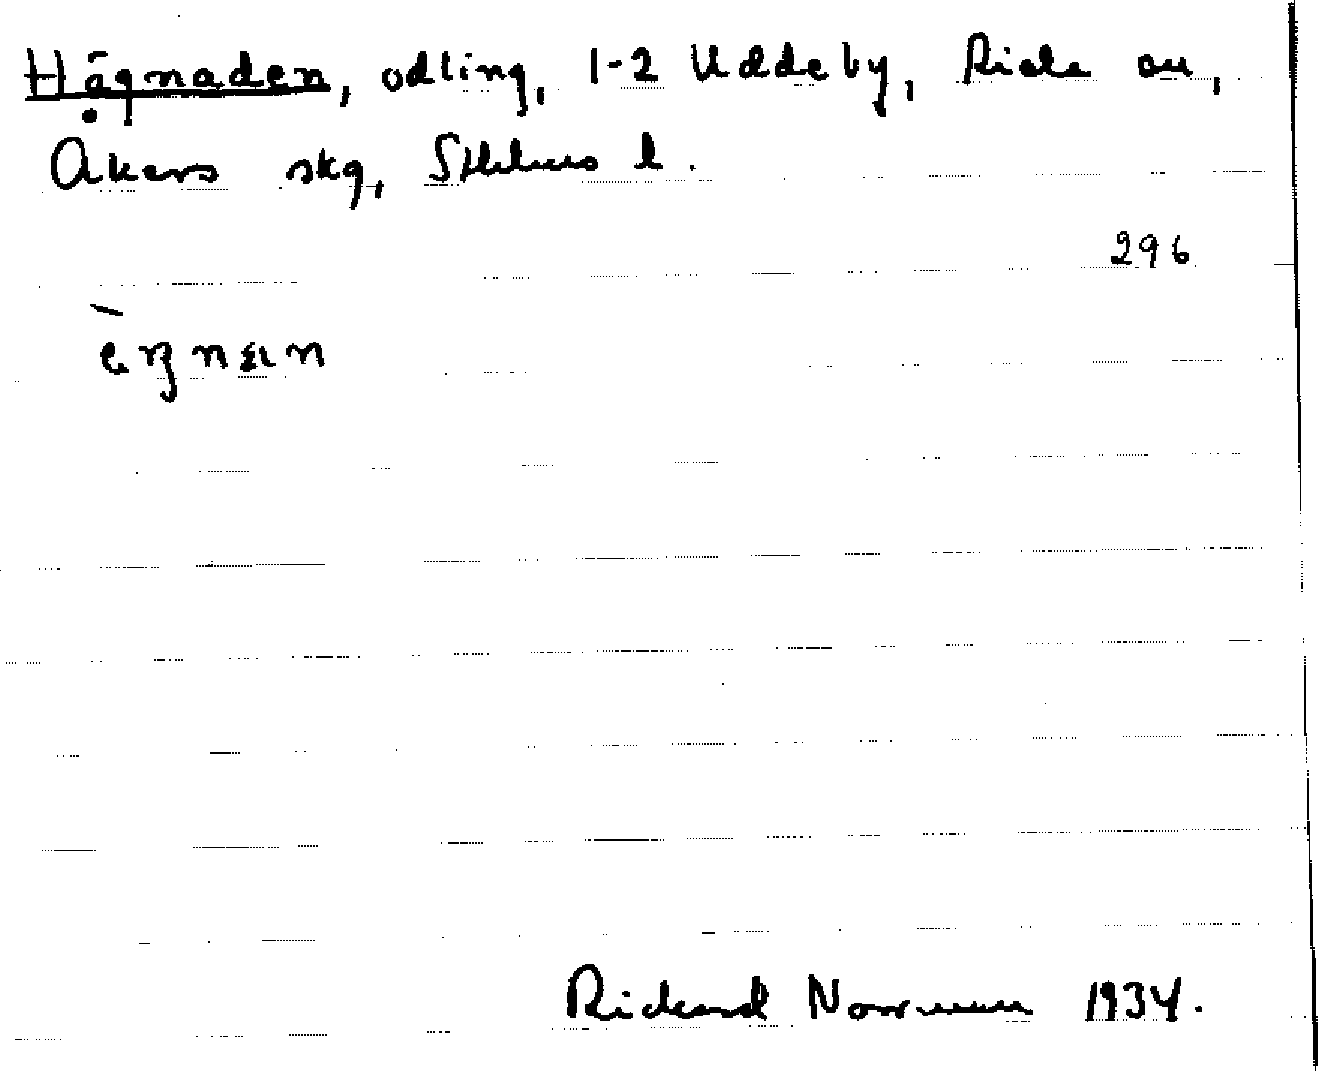 Hägnaden, odling, 1-2 Uddeby, Riala sn,
Åkers skg, Sthlms l.
296
Rickard Norrman 1934.